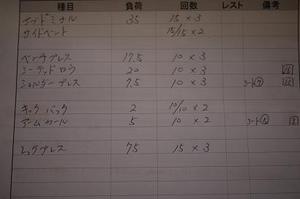 種目 負荷 回数 レスト 備考
アブドミナル 35 15 × 3
サイドベント 15/15 × 2
ベンチプレス 17.5 10 × 3
シーテッドロウ 20 10 × 3
ショルダープレス 7.5 10 × 3 シート⑦
キックバック 2 10/10 × 2
アームカール 5 10 × 2 シート⑥
レッグプレス 75 15 × 3